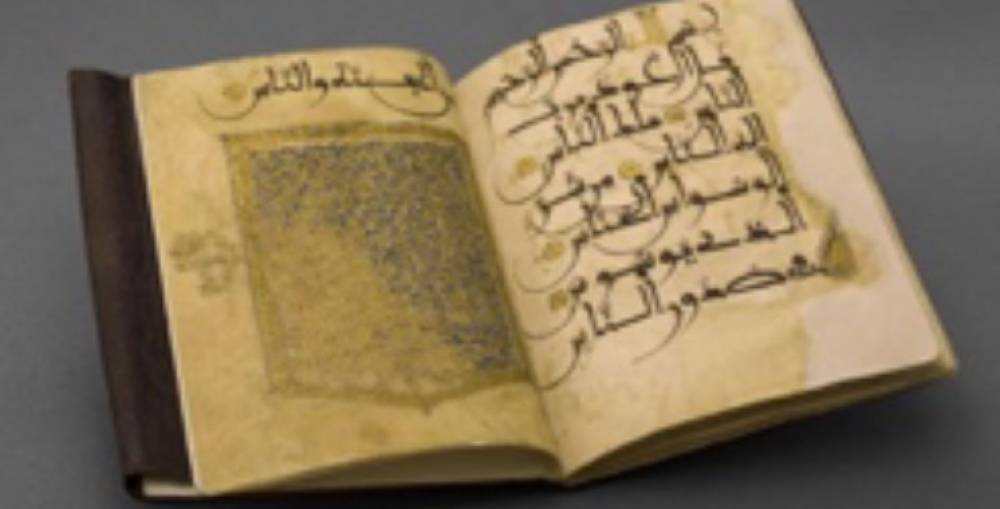 بسم الله الرحمن الرحيم
قل أعوذ برب
الناس ملك الناس
إله الناس من شر
الوسواس الخناس
الذي يوسوس
في صدور الناس
من الجنة والناس